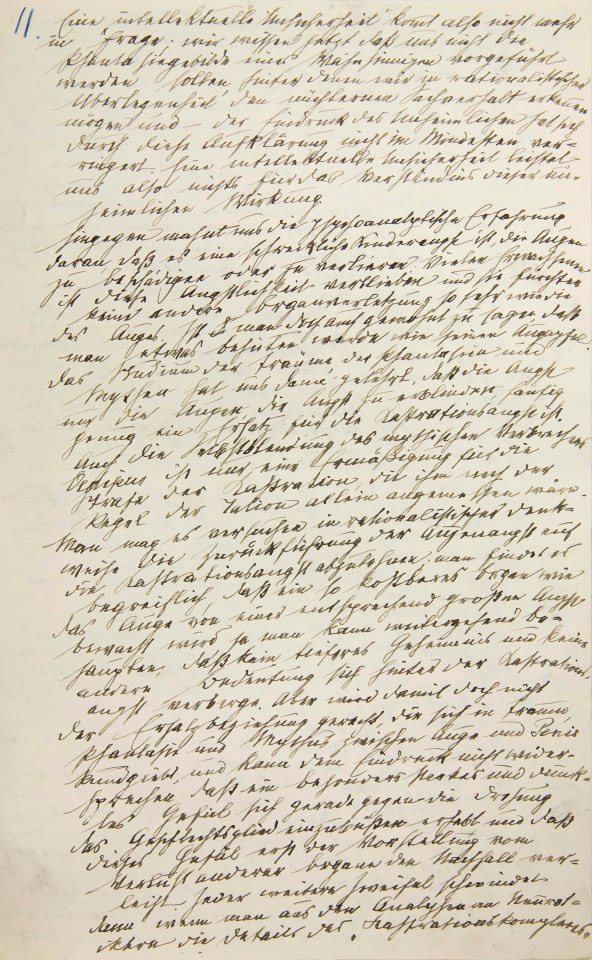 11.
Eine intellektuelle Unsicherheit komt also nicht mehr
in Frage: wir wissen jetzt daß uns nicht die
Phantasiegebilde eines Wahnsinnigen vorgeführt
werden sollen hinter denen wir in rationalistischer
Überlegenheit den nüchternen Sachverhalt erkennen
mögen und der Eindruck des Unheimlichen hat sich
durch diese Aufklärung nicht im Mindesten ver-
ringert. Eine intellektuelle Unsicherheit leistet
uns also nichts für das Verständnis dieser un-
heimlichen Wirkung.
Hingegen mahnt uns die psychoanalytische Erfahrung
daran daß es eine schreckliche Kinderangst ist, die Augen
zu beschädigen oder zu verlieren. Vielen Erwachsenen
ist diese Ängstlichkeit verblieben und sie fürchten
keine andere Organverletzung so sehr wie die
des Auges. Ist man doch auch gewohnt zu sagen daß
man etwas behüten werde wie seinen Augapfel.
Das Studium der Träume der Phantasien und
Mythen hat uns dann gelehrt, daß die Angst
um die Augen, die Angst zu erblinden häufig
genug ein Ersatz für die Kastrationsangst ist.
Auch die Selbstblendung des mythischen Verbrechers
Ödipus ist nur eine Ermäßigung für die
Strafe der Kastration, die ihm nach der
Regel der Talion allein angemessen wäre.
Man mag es versuchen in rationalistischer Denk-
weise die Zurückführung der Augenangst auf
die Kastrationsangst abzulehnen; man findet es
begreiflich daß ein so kostbares Organ wie
das Auge von einer entsprechend großen Angst
bewacht wird ja man kann weitergehend be-
haupten, daß kein tieferes Geheimnis und keine
andere Bedeutung sich hinter der Kastrations-
angst verberge. Aber wird damit doch nicht
der Ersatzbeziehung gerecht, die sich in Traum,
Phantasie und Mythus zwischen Auge und Penis
kundgiebt, und kann dem Eindruck nicht wider-
sprechen daß ein besonders starkes und dunk-
les Gefül sich gerade gegen die Drohung
das Geschlechtsglied einzubüßen erhebt und daß
dieses Gefül erst der Vorstellung vom
Verlust anderer Organe den Nachhall ver-
leiht. Jeder weitere Zweifel schwindet
dann wenn man aus den Analysen an Neurot-
ikern die Details des „Kastrationskomplexes“